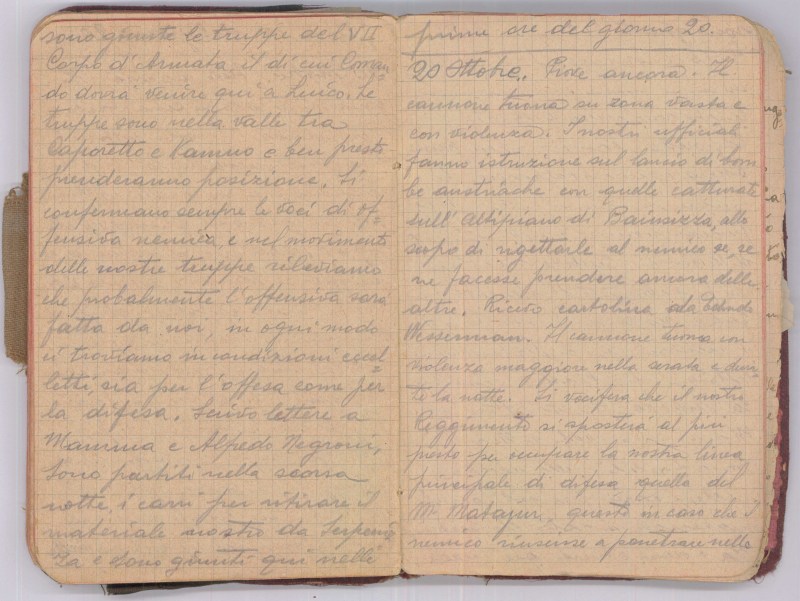 sono giunte le truppe del VII
Corpo d'Armata il di cui Coman
do dovrà venire qui a Luico. Le
truppe sono nella valle tra
Caporetto e Kamno e ben presto
prenderanno posizione. Si
confermano sempre le voci di of=
fensiva nemica, e nel movimento
delle nostre truppe rileviamo
che probalmente l'offensiva sarà
fatta da noi, in ogni modo
ci troviamo in condizioni eccel=
letti, sia per l'offesa come per
la difesa. Scrivo lettere a
Mamma e Alfredo Negroni,
Sono partiti nella scorsa
notte, i carri per ritirare il
materiale nostro da
za e sono giunti qui nelle
prime ore del giorno 20.
20 Ottobre. ancora. Il
cannone tuona su zona vasta e
con violenza. I nostri ufficiali
fanno istruzione sul lancio di bom
be austriache con quelle catturate
sull'Altipiano di Bainsizza, allo
scopo di rigettarle al nemico se, se
ne facesse prendere ancora delle
altre. Ricevo cartolina da
Wesserman. Il cannone tuona con
violenza maggiore nella serata e duran
te la notte. Si vocifera che il nostro
Reggimento si sposterà al più
presto per occupare la nostra linea
principale di difesa quella del
M. Matajur, questo in caso che il
nemico riuscisse a penetrare nella